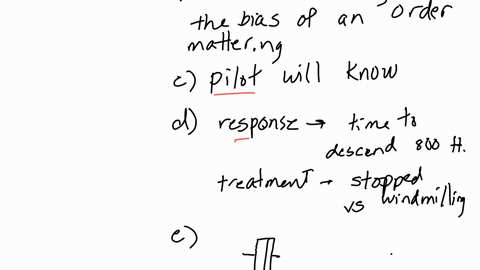 the bias of an order
mattering
c) pilot will know
d) response → time to
descend 800 ft.
treatment → stopped
vs windmilling
e)